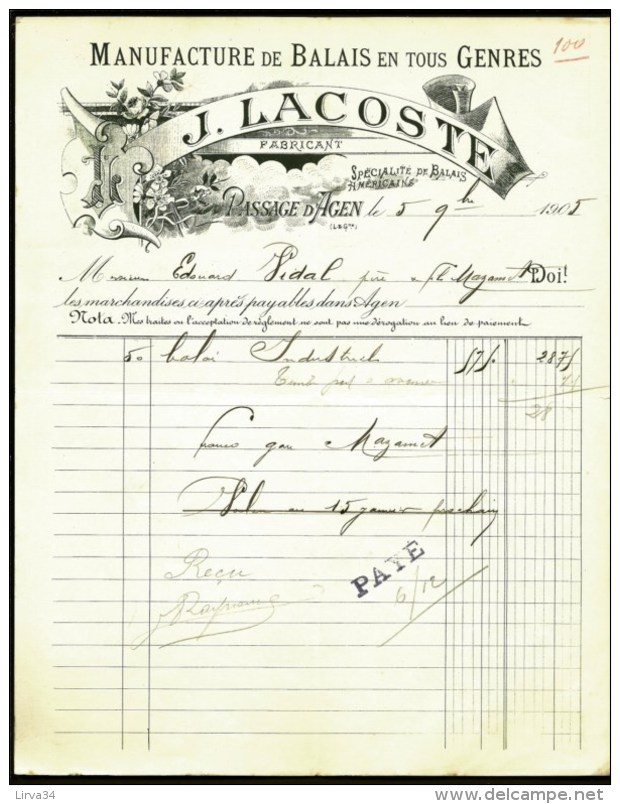 100
MANUFACTURE DE BALAIS EN TOUS GENRES
J. LACOSTE
FABRICANT
SPÉCIALITÉ DE BALAIS
AMÉRICAINS
PASSAGE D'AGEN le 5 9bre 1905
(L&Gne)
M Edouard Vidal père & fils Mazamet Doi!
les marchandises ci-après payables dans Agen
Nota. Mes traites ou l'acceptation de règlement ne sont pas une dérogation au lieu de paiement
50 balai Industriel 57/. 28 75
75
28
franco gare Mazamet
Valeur au 15 janvier prochain
PAYÉ
Reçu
6/12
Lirva34
delcampe.net